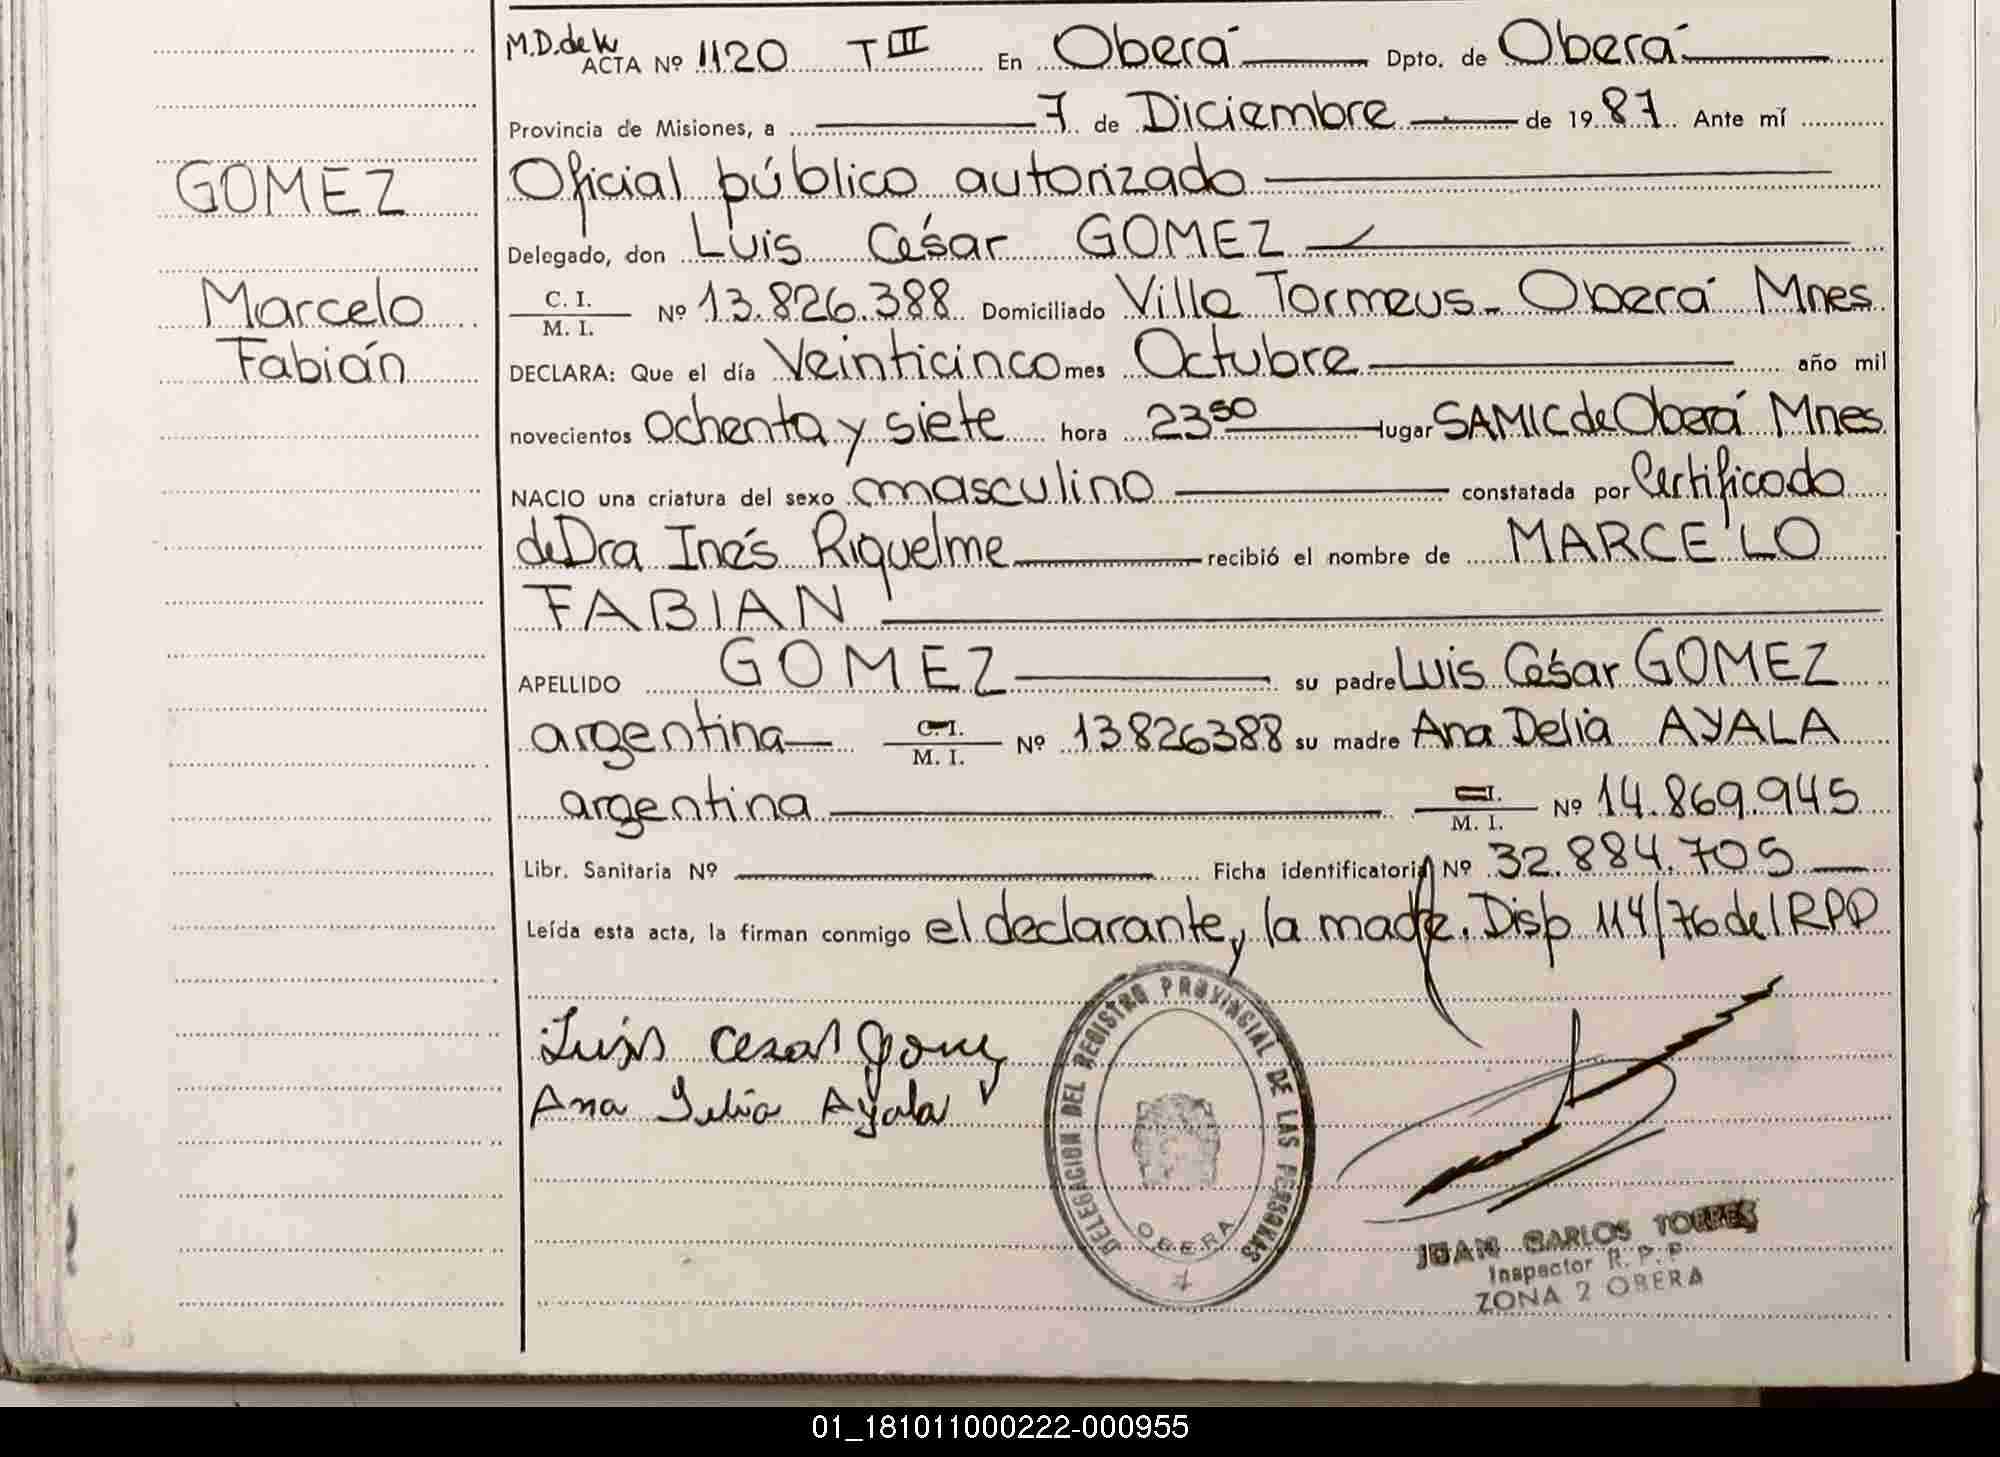 M.D. de W
ACTA Nº 1120 T III En Oberá Dpto. de Oberá
Provincia de Misiones, a 7 de Diciembre de 1987 Ante mí
Oficial público autorizado
GOMEZ
Delegado, don Luis César GOMEZ
Marcelo
C. I.
M. I. Nº 13.826.388 Domiciliado Villa Tormeus - Oberá Mnes
Fabián
DECLARA: Que el día Veinticinco mes Octubre año mil
novecientos ochenta y siete hora 23 50 lugar SAMIC de Oberá Mnes
NACIO una criatura del sexo masculino constatada por Certificado
de Dra Inés Riquelme recibió el nombre de MARCELO
FABIAN
APELLIDO GOMEZ su padre Luis César GOMEZ
argentina C. I. M. I. Nº 13826388 su madre Ana Delia AYALA
argentina M. I. Nº 14.869.945
Libr. Sanitaria Nº Ficha identificatoria Nº 32.884.705
Leída esta acta, la firman conmigo el declarante, y la madre. Disp 114/76 del RPP
Luis Cesar Gomez
Ana Delia Ayala
DELEGACION DEL REGISTRO PROVINCIAL DE LAS PERSONAS
OBERA
JUAN CARLOS TORRES
Inspector R. P. P.
ZONA 2 OBERA
01_181011000222-000955